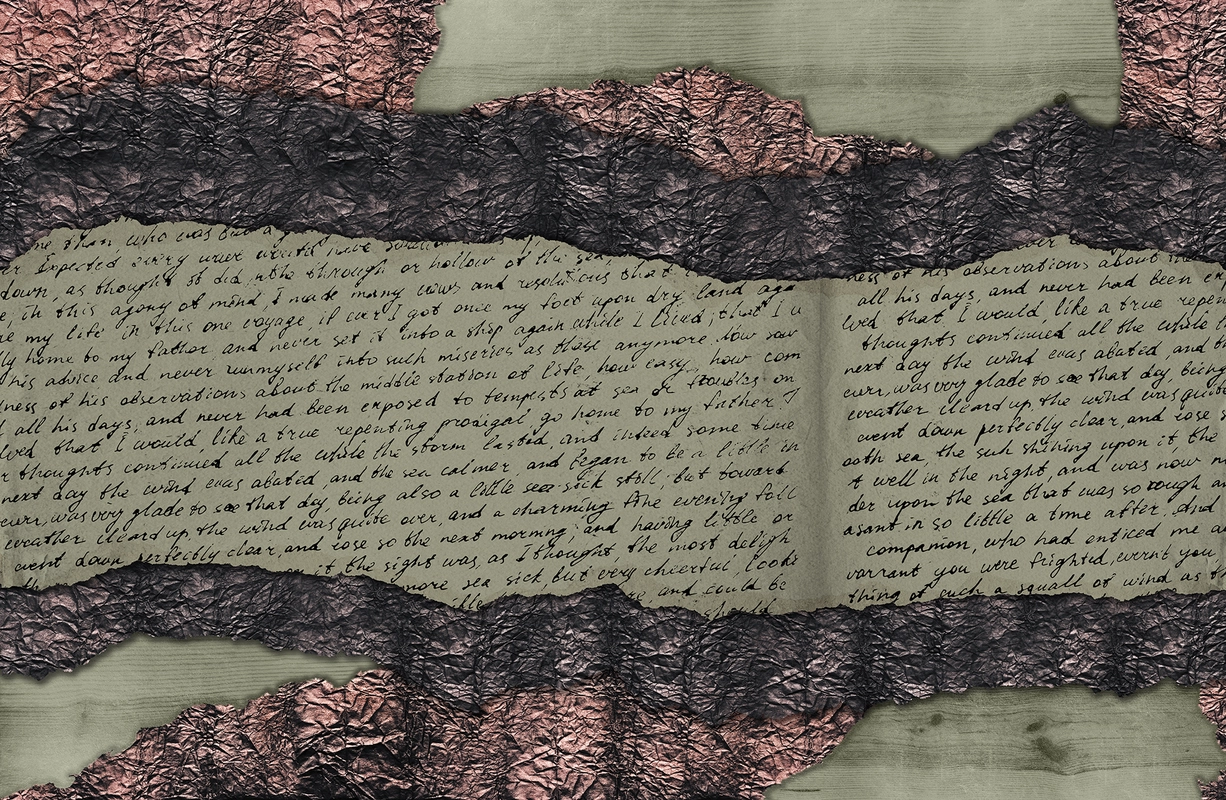 me than who was but a
er Expected every wave would have
down, as though it did, in the through or hollow of the sea,
e, in this agony of mind, I made many vows and resolutions that
re my life in this one voyage, if ever I got once my foot upon dry land aga
ly home to my father, and never set it into a ship again while I lived; that I w
his advice and never runmyself into such miseries as these anymore. Now saw
dness of his observations about the middle station of life, how easy, how com
d all his days, and never had been exposed to tempests at sea or troubles on
lved that I would, like a true repenting prodigal, go home to my father.
r thoughts continued all the while the storm lasted, and indeed some time
next day the wind was abated, and the sea calmer, and I began to be a little in
ever, was very glade to see that day, being also a little sea-sick still; but toward
weather cleard up, the wind was quite over, and a charming fine evening foll
went down perfectly clear, and rose so the next morning; and having little or
it the sight was, as I thought the most deligh
more sea sick, but very cheerful, looki
and could be
should
ness of his observations about
all his days, and never had been
lved that I would, like a true repen
thoughts continued all the while
next day the wind was abated, and
ever, was very glade to see that day, being
weather cleard up, the wind was quite
went down perfectly clear, and rose
ooth sea, the sun shining upon it the
t well in the night, and was now
der upon the sea that was so rough an
asant in so little a time after. And
companion, who had enticed me a
warrant you were frighted, wernt you
thing of such a squall of wind as